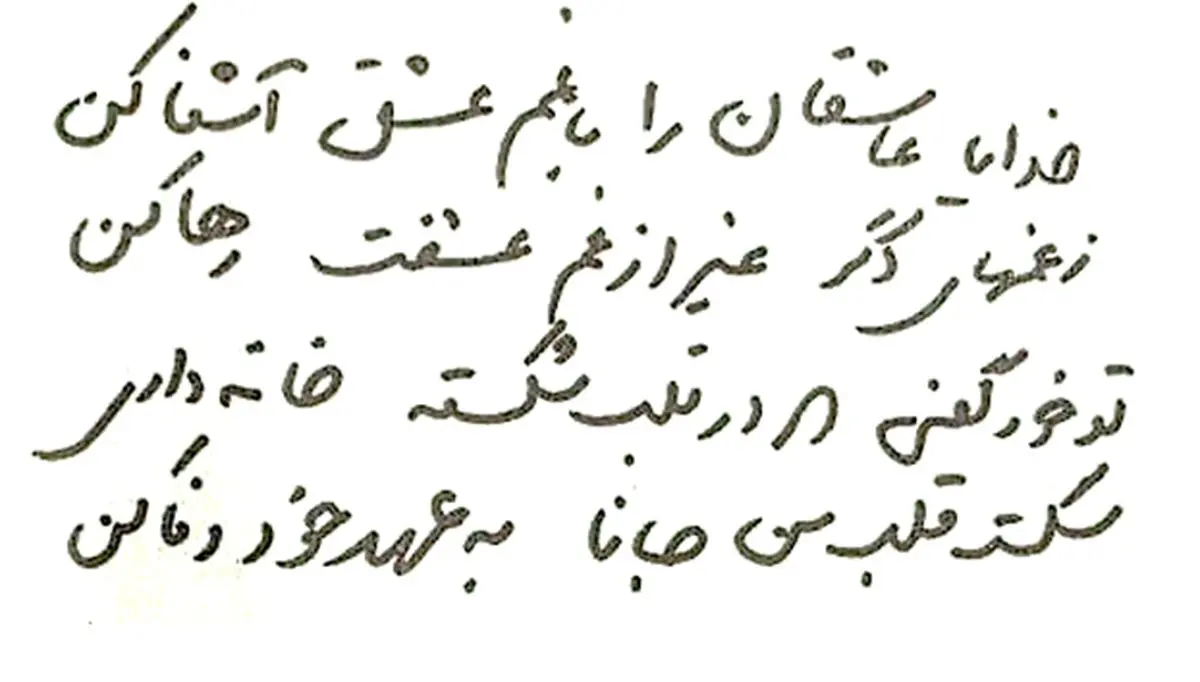 خدایا عاشقان را با غم عشق آشنا کن
ز غمهای دگر غیر از غم عشقت رها کن
تو خود گفتی که در قلب شکسته خانه داری
شکسته قلب من جانا به عهد خود وفا کن